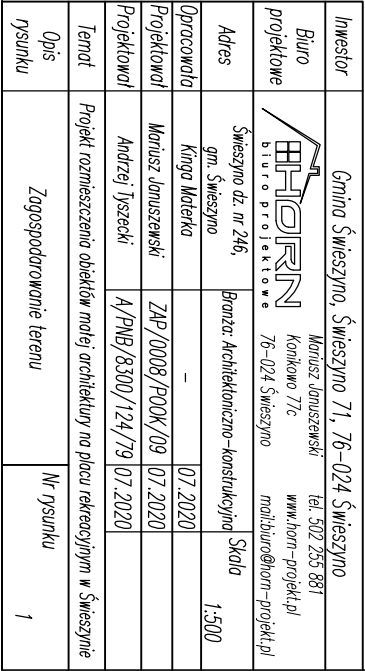 Inwestor Gmina Świeszyno, Świeszyno 71, 76-024 Świeszyno
Biuro projektowe
HORN
biuro projektowe
Mariusz Januszewski tel. 502 255 881
Konikowo 77c www.horn-projekt.pl
76-024 Świeszyno mail:biuro@horn-projekt.pl
Adres Świeszyno dz. nr 246, Branża: Architektoniczno-konstrukcyjna Skala
gm. Świeszyno 1:500
Opracowała Kinga Materka - 07.2020
Projektował Mariusz Januszewski ZAP/0008/POOK/09 07.2020
Projektował Andrzej Tyszecki A/PNB/8300/124/79 07.2020
Temat Projekt rozmieszczenia obiektów małej architektury na placu rekreacyjnym w Świeszynie
Opis Zagospodarowanie terenu Nr rysunku
rysunku 1